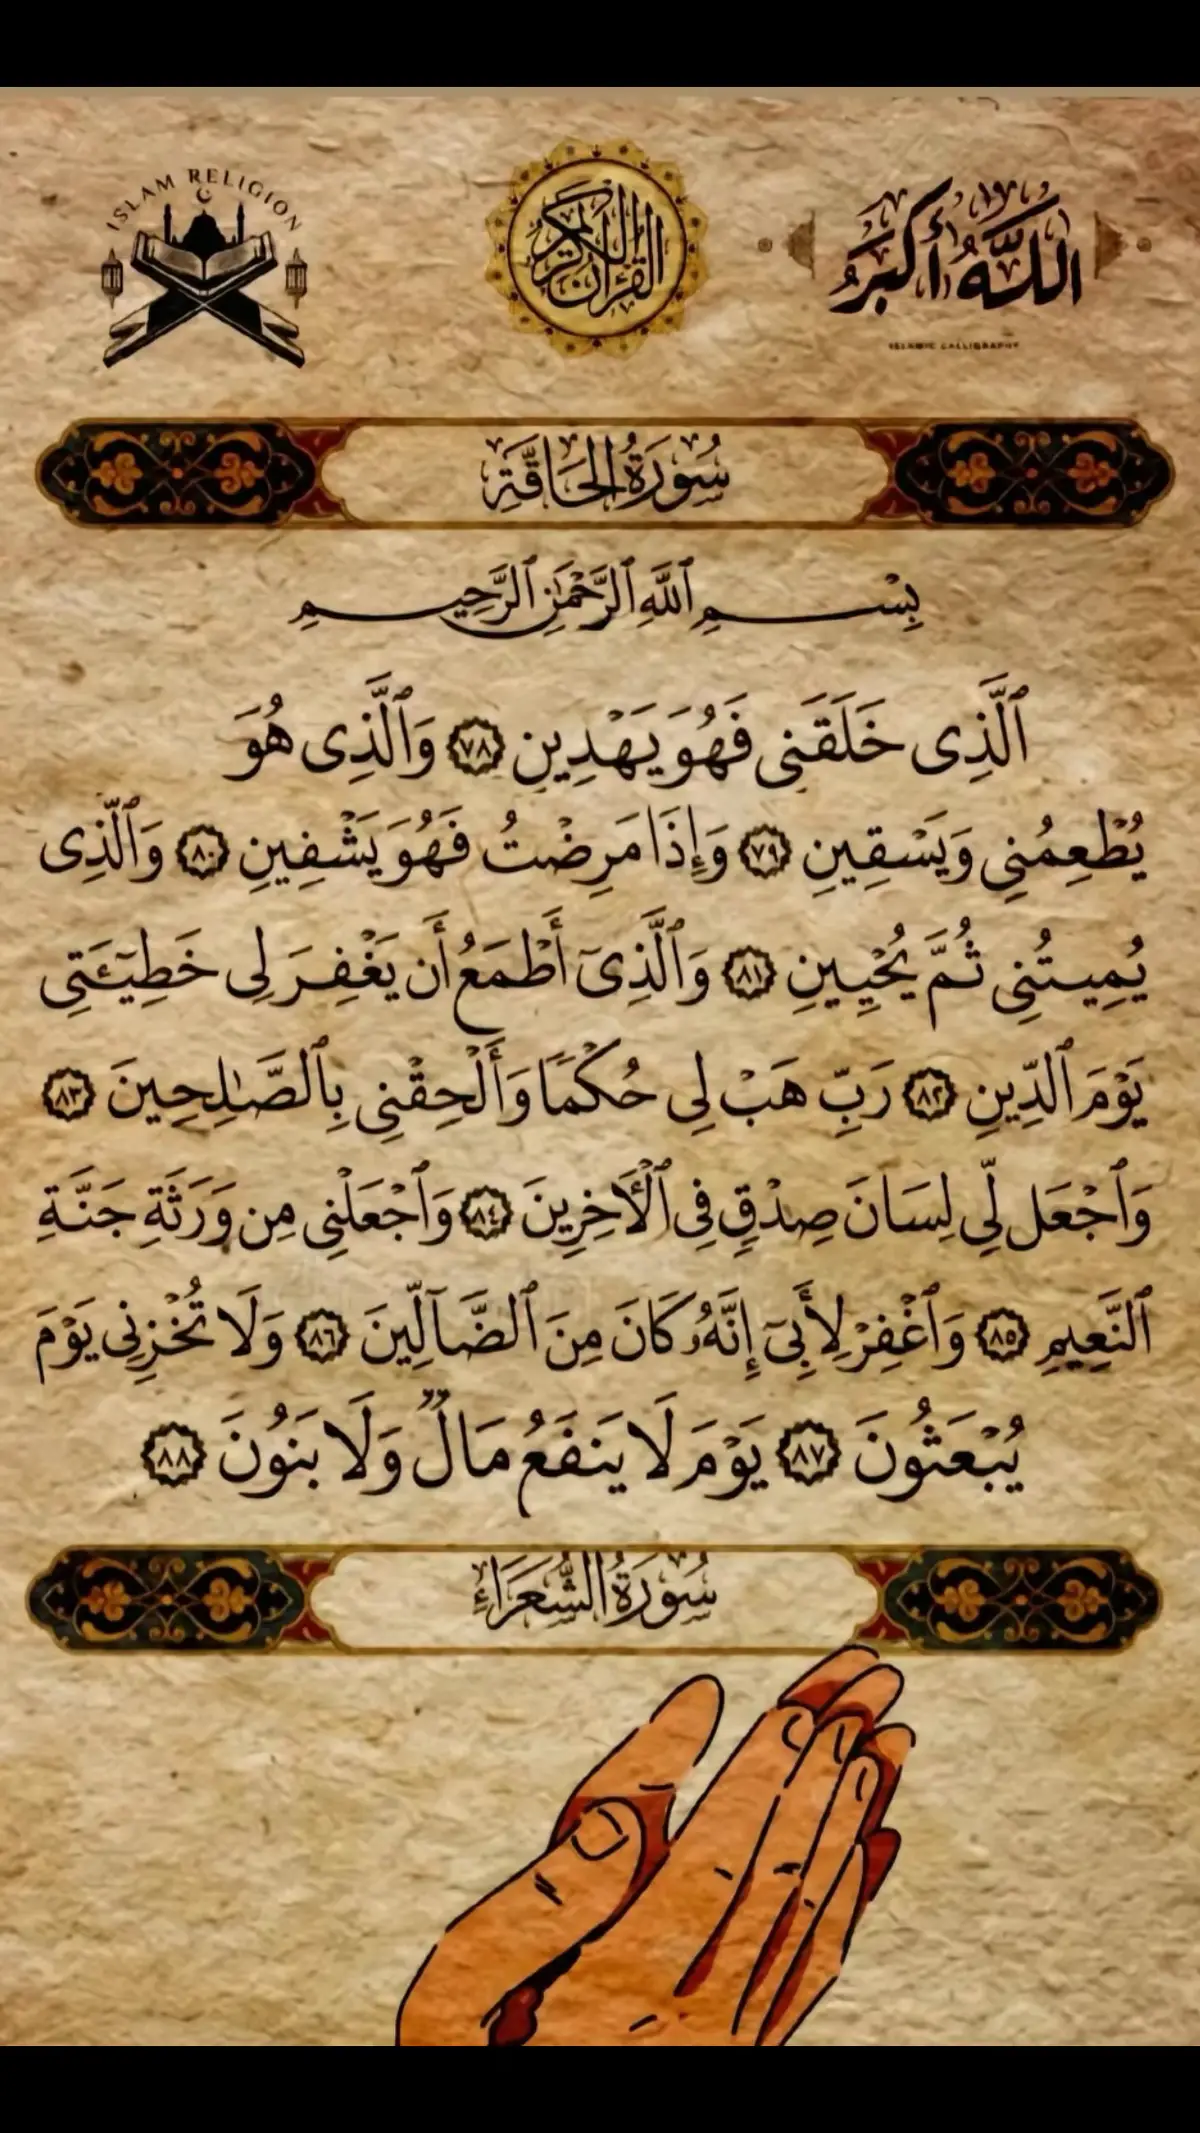 ISLAM RELIGION
القرآن الكريم
اللَّهُ أَكْبَرُ
ISLAMIC CALLIGRAPHY
سُورَةُ الحَاقَّةِ
بِسْمِ ٱللَّهِ ٱلرَّحْمَٰنِ ٱلرَّحِيمِ
ٱلَّذِى خَلَقَنِى فَهُوَ يَهْدِينِ ٧٨ وَٱلَّذِى هُوَ
يُطْعِمُنِى وَيَسْقِينِ ٧٩ وَإِذَا مَرِضْتُ فَهُوَ يَشْفِينِ ٨٠ وَٱلَّذِى
يُمِيتُنِى ثُمَّ يُحْيِينِ ٨١ وَٱلَّذِىٓ أَطْمَعُ أَن يَغْفِرَ لِى خَطِيٓـَٔتِى
يَوْمَ ٱلدِّينِ ٨٢ رَبِّ هَبْ لِى حُكْمًا وَأَلْحِقْنِى بِٱلصَّـٰلِحِينَ ٨٣
وَٱجْعَل لِّى لِسَانَ صِدْقٍ فِى ٱلْأَخِرِينَ ٨٤ وَٱجْعَلْنِى مِن وَرَثَةِ جَنَّةِ
ٱلنَّعِيمِ ٨٥ وَٱغْفِرْ لِأَبِىٓ إِنَّهُۥ كَانَ مِنَ ٱلضَّآلِّينَ ٨٦ وَلَا تُخْزِنِى يَوْمَ
يُبْعَثُونَ ٨٧ يَوْمَ لَا يَنفَعُ مَالٌ وَلَا بَنُونَ ٨٨
سُورَةُ الشُّعَرَاءِ